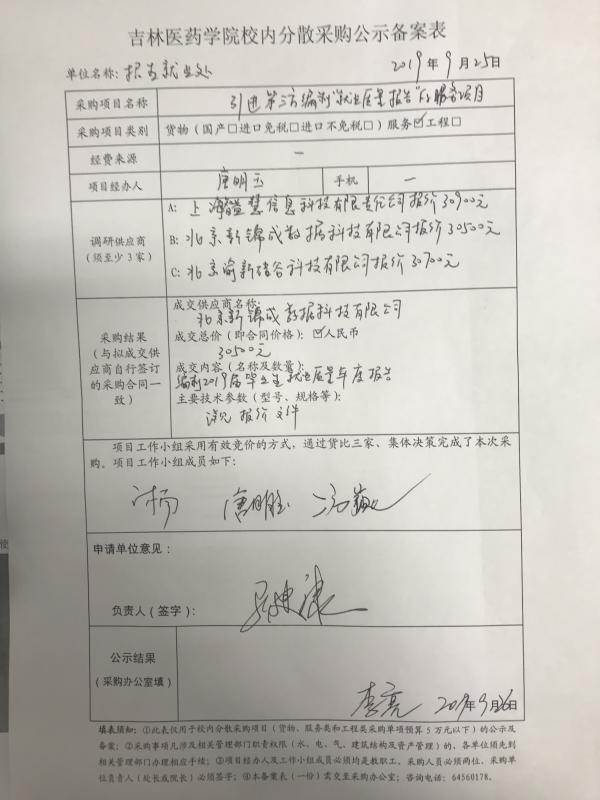 吉林医药学院校内分散采购公示备案表
单位名称：招生就业处 2019年9月25日
采购项目名称 引进第三方编制"就业质量报告"的服务项目
采购项目类别 货物（国产□进口免税□进口不免税□）服务☑工程□
经费来源 一
项目经办人 唐明玉 手机 一
调研供应商
（须至少3家）
A: 上海 慧信息科技有限责任公司报价30900元
B: 北京新锦成数据科技有限公司报价30500元
C: 北京 新硅谷科技有限公司报价30700元
采购结果
（与拟成交供
应商自行签订
的采购合同一
致）
成交供应商名称：
北京新锦成数据科技有限公司
成交总价（即合同价格）：☑人民币
30500元
成交内容（名称及数量）：
编制2019届毕业生就业质量年度报告
主要技术参数（型号、规格等）：
详见报价文件
项目工作小组采用有效竞价的方式，通过货比三家、集体决策完成了本次采
购。项目工作小组成员如下：
唐明玉
申请单位意见：
负责人（签字）：
公示结果
（采购办公室填）
李亮 2019年9月26日
填表须知：①此表仅用于校内分散采购项目（货物、服务类和工程类采购单项预算5万元以下）的公示及
备案；②采购事项凡涉及相关管理部门职责权限（水、电、气、建筑结构及资产管理）的，各单位须先到
相关管理部门办理相应手续；③项目经办人及工作小组成员必须均是教职工，采购人员必须两位，采购单
位负责人（处长或院长）必须签字；④本备案表（一份）需交至采购办公室；咨询电话：64560178。